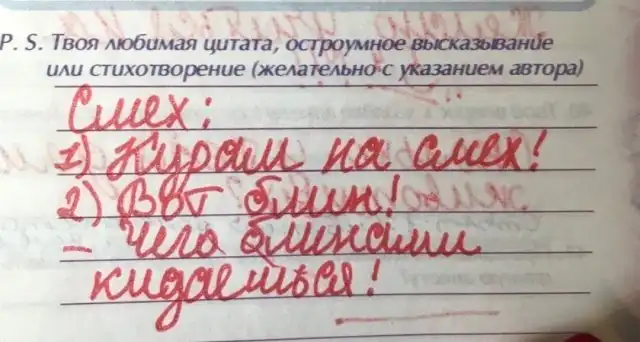 P. S. Твоя любимая цитата, остроумное высказывание
или стихотворение (желательно с указанием автора)
Смех:
1) Курам на смех!
2) Вот блин!
- Чего блинами
кидаешься!